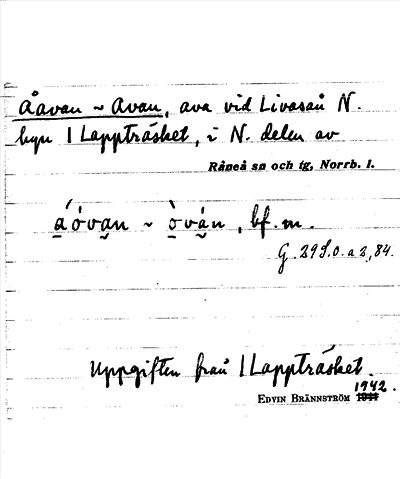 Åavan ~ Avan, ava vid Livasån N.
byn 1 Lappträsket, i N. delen av
Råneå sn och tg, Norrb. l.
a̱͂óva̮n ~ òvá̮n, bf. m.
G. 29 S.O. a 2, 84.
Uppgiften från 1 Lappträsket.
1942.
EDVIN BRÄNNSTRÖM 1941